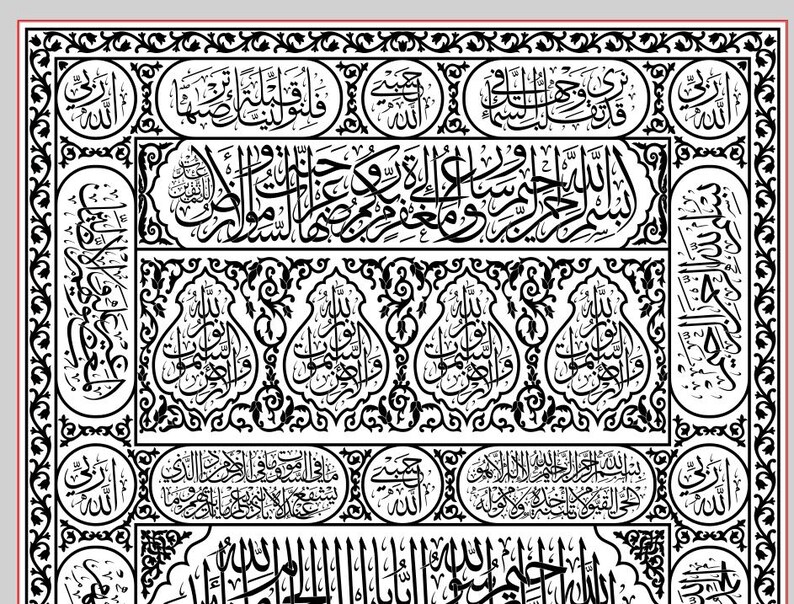 الله ربي
قد نرى تقلب وجهك في السماء
الله حسبي
فلنولينك قبلة ترضاها
الله ربي
بسم الله الرحمن الرحيم وسارعوا إلى مغفرة من ربكم وجنة عرضها السموات والأرض أعدت للمتقين
بسم الله الرحمن الرحيم
الله نور السموات والأرض
الله نور السموات والأرض
الله نور السموات والأرض
الله نور السموات والأرض
المغضوب عليهم ولا الضالين
الله ربي
بسم الله الرحمن الرحيم الله لا إله إلا هو
الحي القيوم لا تأخذه سنة ولا نوم له
الله حسبي
ما في السموات وما في الأرض من ذا الذي
يشفع عنده إلا بإذنه يعلم ما بين أيديهم وما
الله ربي